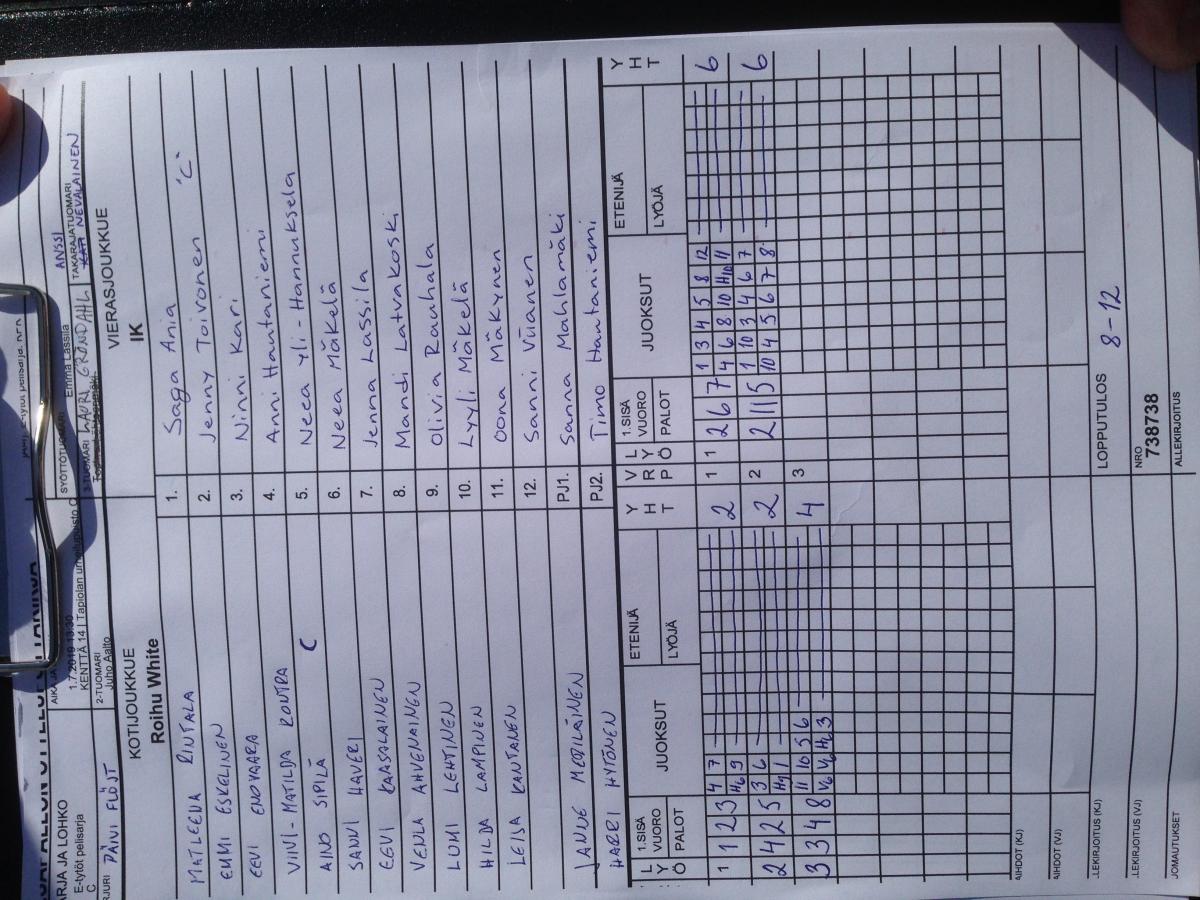 SARJA JA LOHKO
E-tytöt pelisarja
C
PÄIVI FLÖJT
1.7.2019 13:30
KENTTÄ 14 | Tapiolan urheilupuisto
2-TUOMARI
Juho Aalto
SYÖTTÖTUOMARI
Emma Lassila
3-TUOMARI LAURI GRÖNDAHL
ANSSI
TAKARAJATUOMARI
NEVALAINEN
KOTIJOUKKUE
Roihu White
VIERASJOUKKUE
IK
MATLEENA RINTALA 1. Saga Ania
EMMI ESKELINEN 2. Jenny Toivonen "C"
EEVI ENOVAARA 3. Ninni Kari
VIIVI-MATILDA RONTRA 4. Anni Hautaniemi
AINO SIPILÄ C 5. Neea Yli-Hannuksela
SANNI HAVERI 6. Neea Mäkelä
EEVI KAASALAINEN 7. Jenna Lassila
VENLA AHVENAINEN 8. Mandi Latvakoski
LUMI LEHTINEN 9. Olivia Rauhala
HILDA LAMPINEN 10. Lyyli Mäkelä
LEISA KANTANEN 11. Oona Mäkynen
12. Sanni Viianen
JANNE MERILÄINEN PJ1. Sanna Mahlamäki
HARRI HYTÖNEN PJ2. Timo Hautaniemi
LYÖ 1.SISÄ VUORO PALOT JUOKSUT ETENIJÄ LYÖJÄ YHT VRP LYÖ 1.SISÄ VUORO PALOT JUOKSUT ETENIJÄ LYÖJÄ YHT
4 7 1 3 4 5 8 12
1 1 2 3 H6 9 2 1 1 2 6 7 4 6 8 10 H10 11 6
3 6 1 10 3 4 6 7
2 4 2 5 H9 1 2 2 2 11 5 10 4 5 6 7 8 6
11 10 5 6
3 3 4 8 V6 V6 H2 3 4 3
AIHDOT (KJ)
AIHDOT (VJ)
LOPPUTULOS
8-12
LLEKIRJOITUS (KJ)
LLEKIRJOITUS (VJ)
NRO
738738
JOMAUTUKSET
ALLEKIRJOITUS